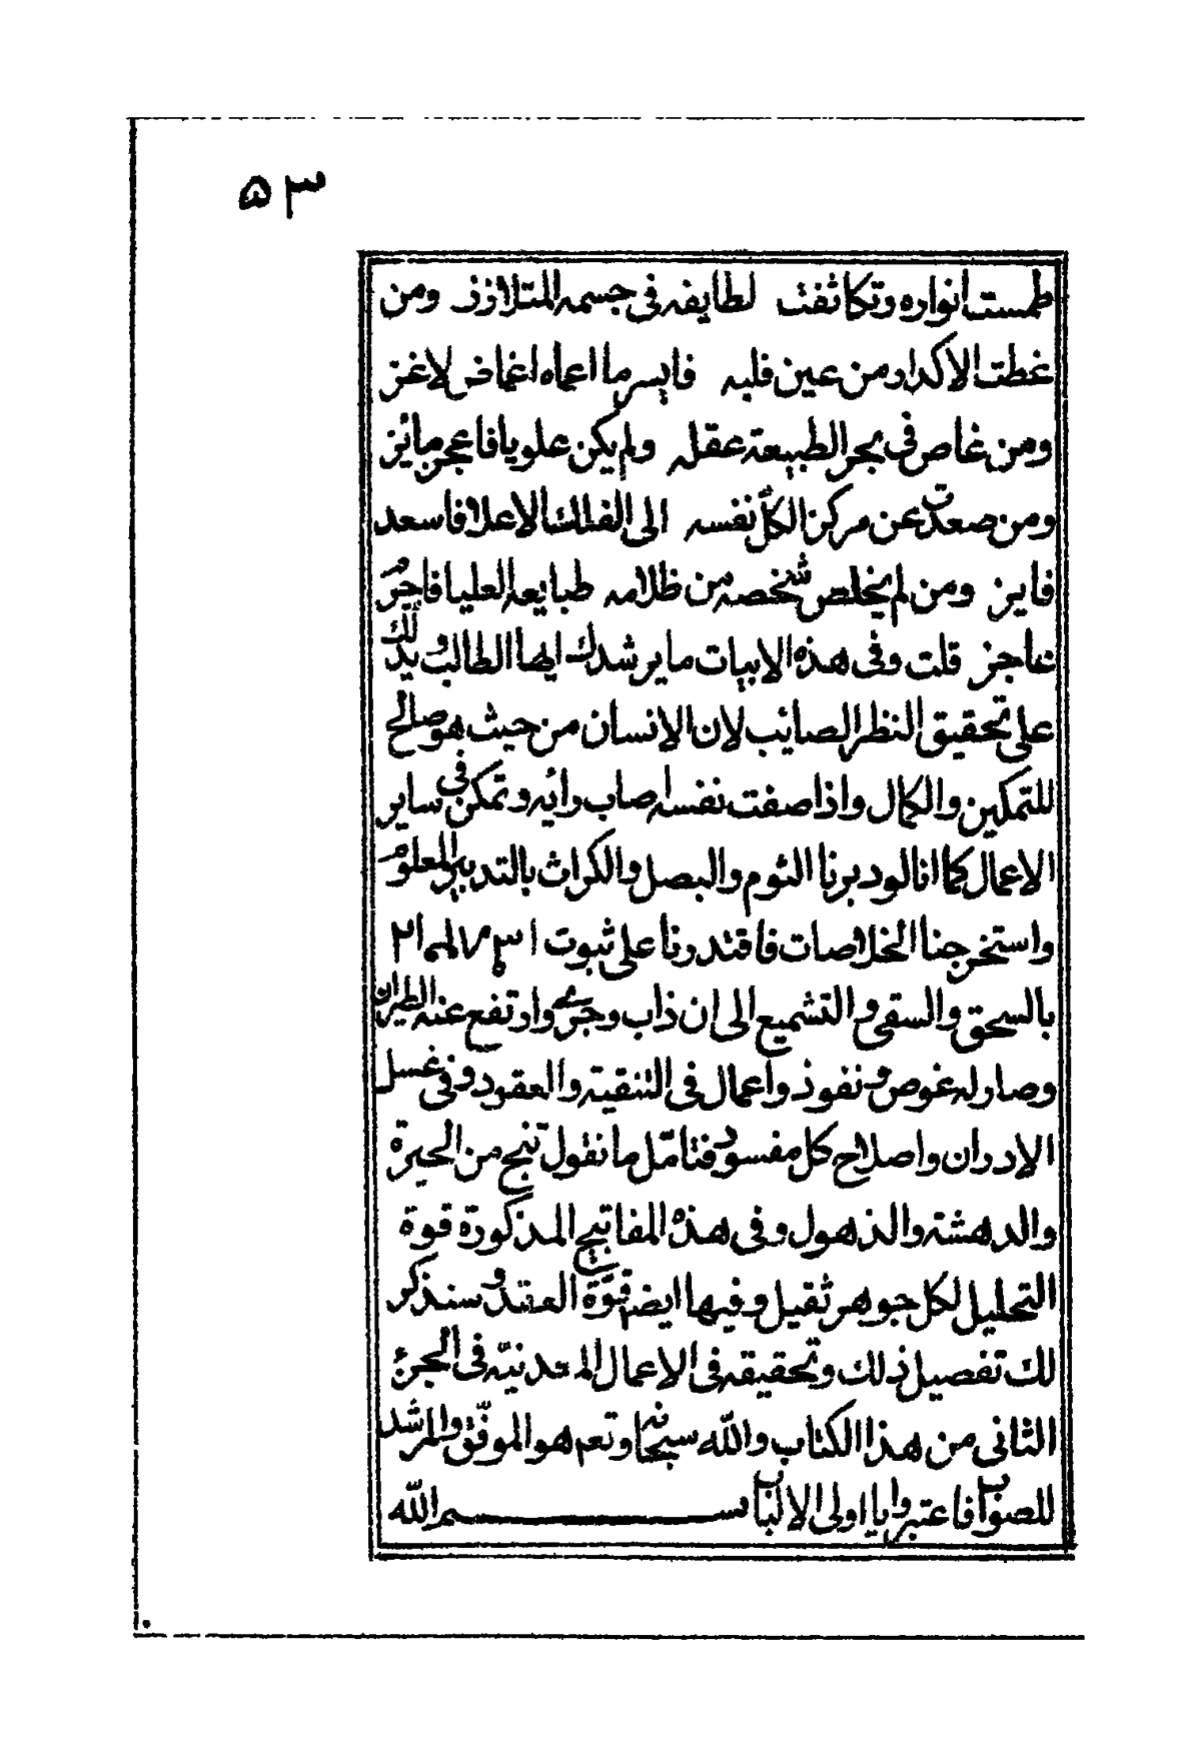 ٥٣
طمست انواره وتكاثفت لطايفه فى جسمه المتلازز ومن
غطت الاكدار من عين قلبه فايسر ما اعماه اغماض لاغز
ومن غاص فى بحر الطبيعة عقله ولم يكن علويا فاعجز مائز
ومن صعدت عن مركز الكل نفسه الى الفلك الاعلا فاسعد
فايز ومن لم يخلص شخصه من ظلامه طبايعه العليا فاجرم
عاجز قلت وفى هذه الابيات ما يرشدك ايها الطالب ويدلك
على تحقيق النظر الصايب لان الانسان من حيث هو صالح
للتمكين والكمال واذا صفت نفسه اصاب رائيه وتمكن فى ساير
الاعمال كما انا لو دبرنا الثوم والبصل والكراث بالتدبير المعلوم
واستخرجنا الخلاصات فاقتدرنا على ثبوت
بالسحق والسقى والتشميع الى ان ذاب وجرى وارتفع عنه الطيران
وصار له غوص ونفوذ واعمال فى التنقية والعقود وفى غسل
الادران واصلاح كل مفسود فتامّل ما نقول تنج من الحيرة
والدهشة والذهول وفى هذه المفاتيح المذكورة قوة
التحليل لكل جوهر ثقيل وفيها ايضا قوّة العقد وسنذكر
لك تفصيل ذلك وتحقيقه فى الاعمال المعدنيّة فى الجزء
الثانى من هذا الكتاب والله سبحانه وتعم هو الموفّق والمرشد
للصواب فاعتبروا يا اولى الالباب بسم الله